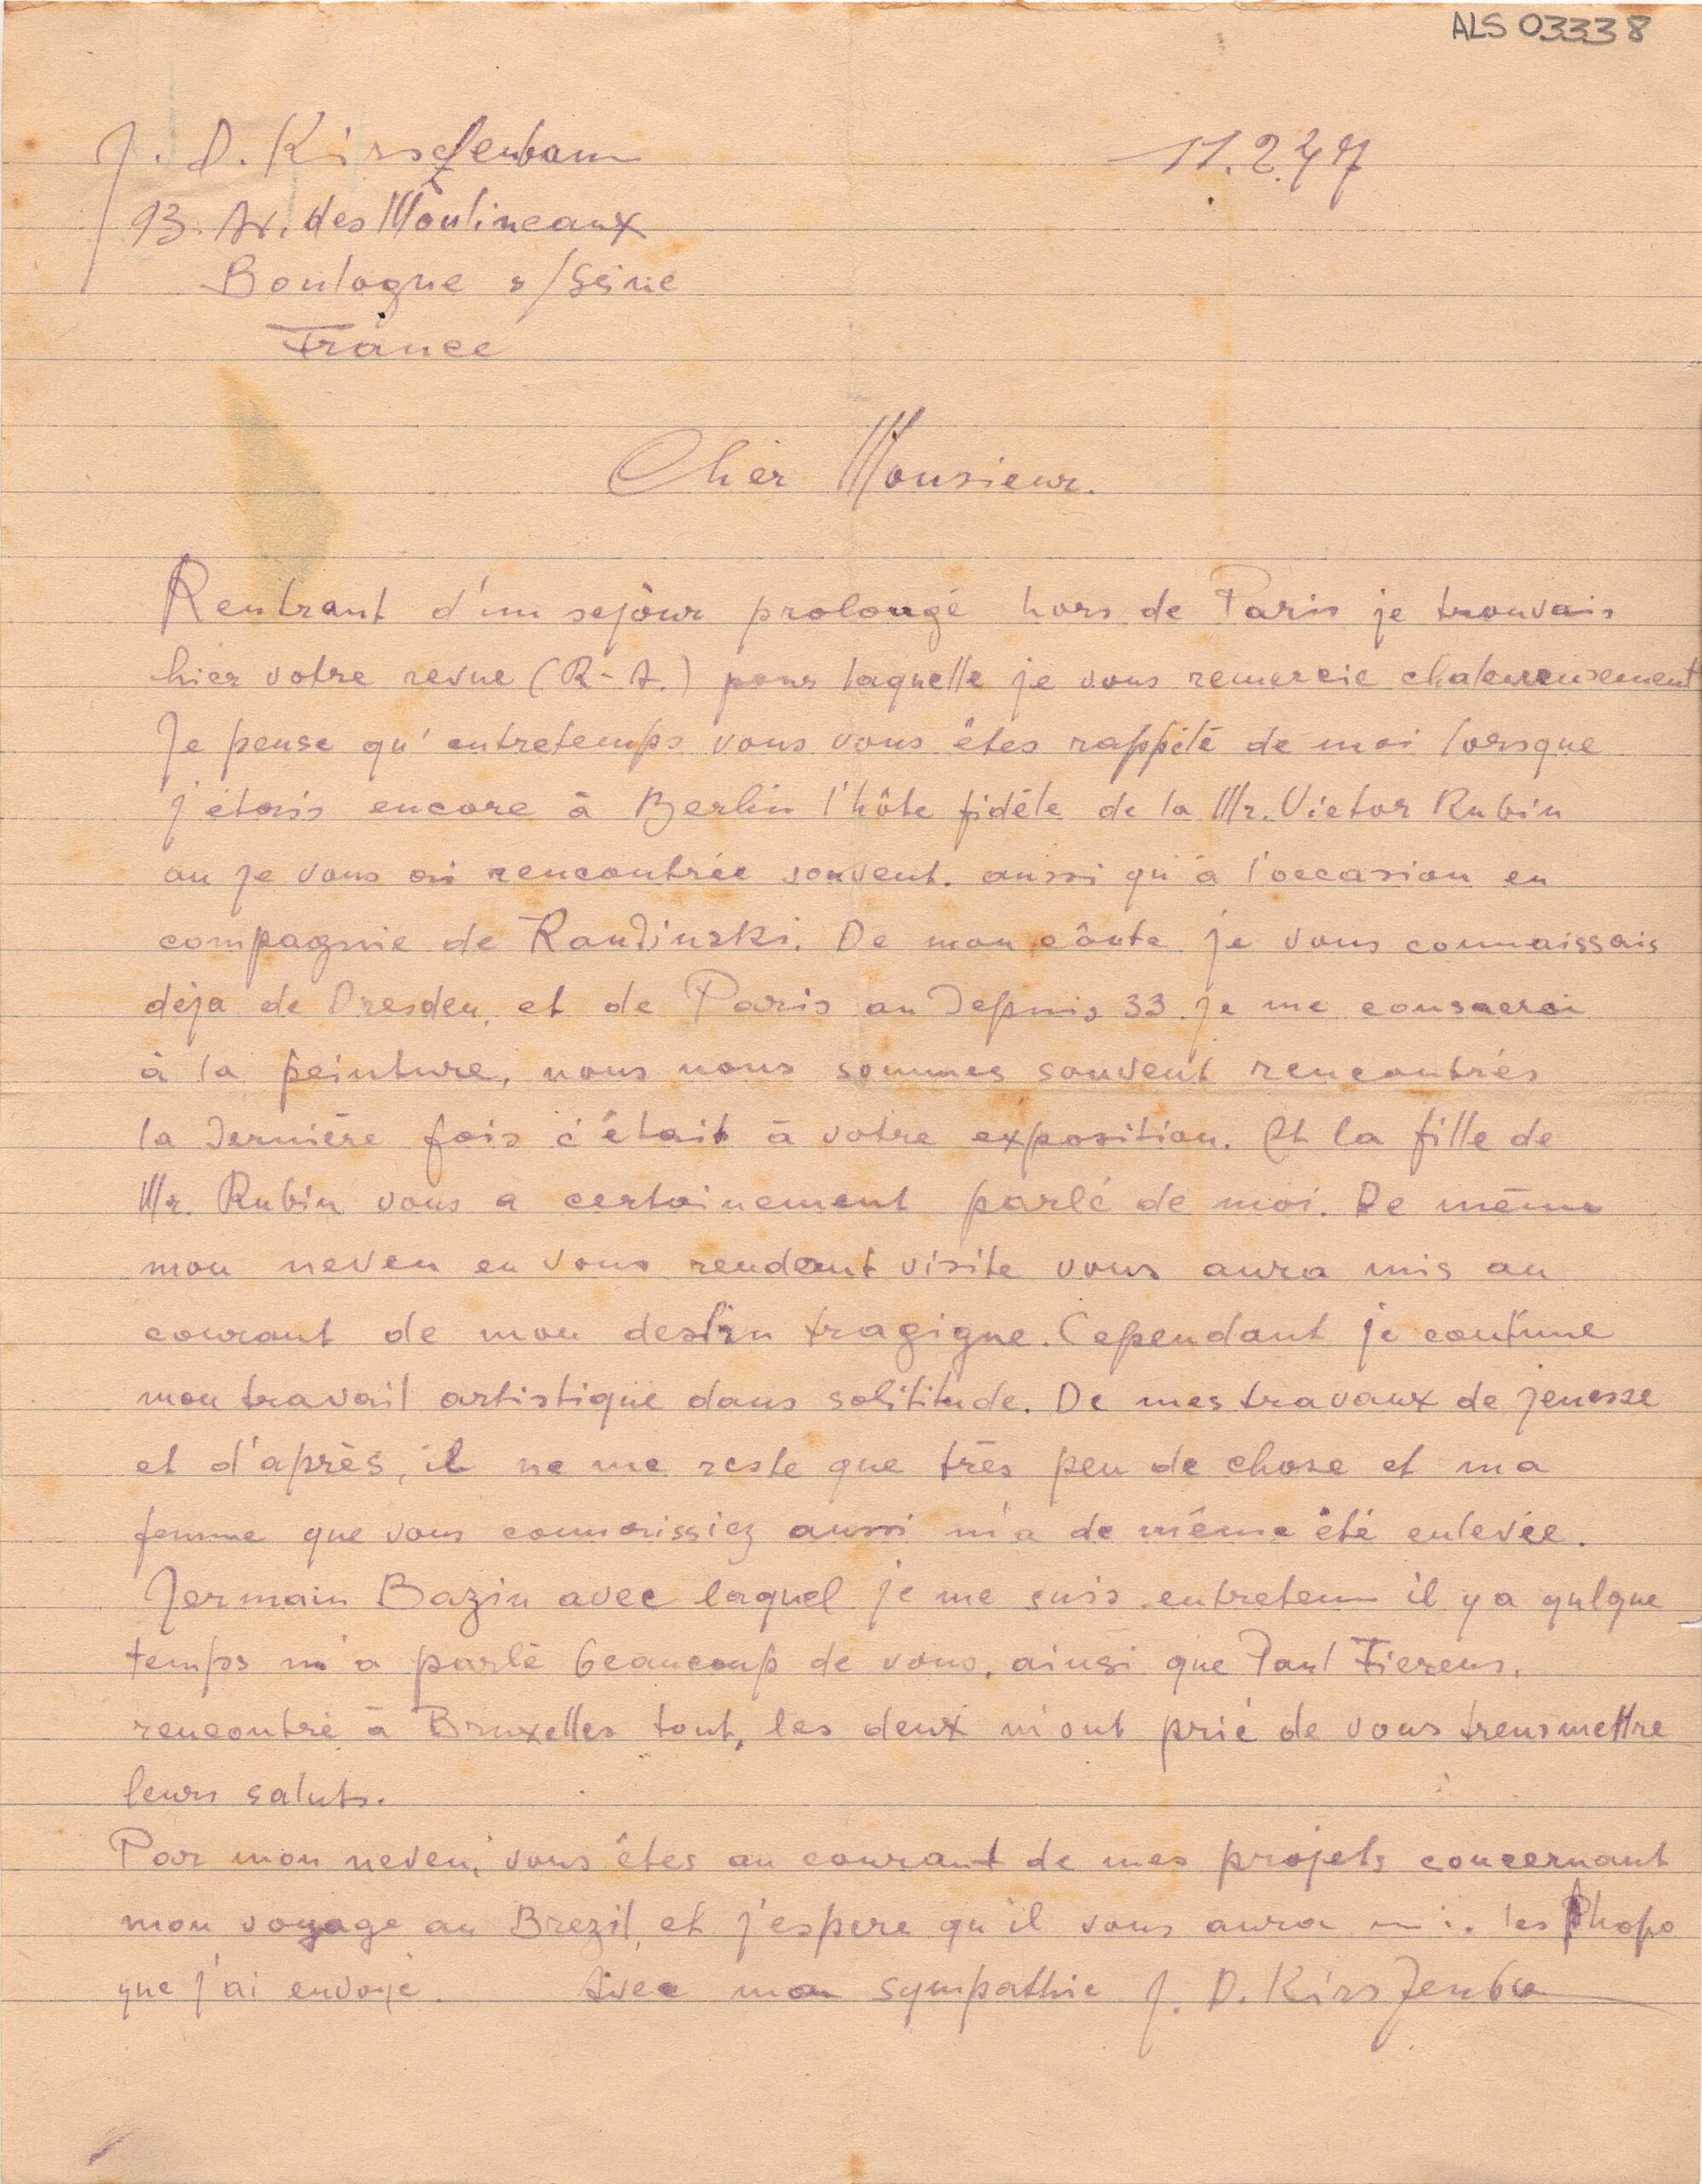 ALS 03338
J. D. Kirszenbaum
11.2.47
93. Av. des Moulineaux
Boulogne s/Seine
France
Cher Monsieur.
Rentrant d'un sejour prolongé hors de Paris je trouvais
hier votre revue (R-A.) pour laquelle je vous remercie chaleureusement
Je pense qu'entretemps vous vous êtes rappélé de moi lorsque
j'étais encore à Berlin l'hôte fidéle de la Mr. Victor Rubin
au je vous ai rencontrée souvent. aussi qu'à l'occasion en
compagnie de Kandinski. De mon côute je vous connaissais
déja de Dresden, et de Paris au depuis 33 je me consacrai
à la peinture, nous nous sommes souvent rencontrés
la dernière fois c'était à votre exposition. Et la fille de
Mr. Rubin vous a certainement parlé de moi. De même
mon neveu en vous rendant visite vous aura mis au
courant de mon destin tragigne. Cependant je continue
mon travail artistique dans solititude. De mes travaux de jenesse
et d'après, il ne me reste que très peu de chose et ma
femme que vous connaissiez aussi m'a de même été enlevée.
Jermain Bazin avec laquel je me suis entretenu il y a qulque
temps m'a parlé beaucoup de vous, ainsi que Paul Fierens,
rencontré à Bruxelles tout, les deux m'ont prié de vous trensmettre
leurs saluts.
Par mon neveu, vous êtes au courant de mes projets concernant
mon voyage au Brezil, et j'espere qu'il vous aura les Phopo
que j'ai envoyé. Avec mon sympathie J. D. Kirszenba